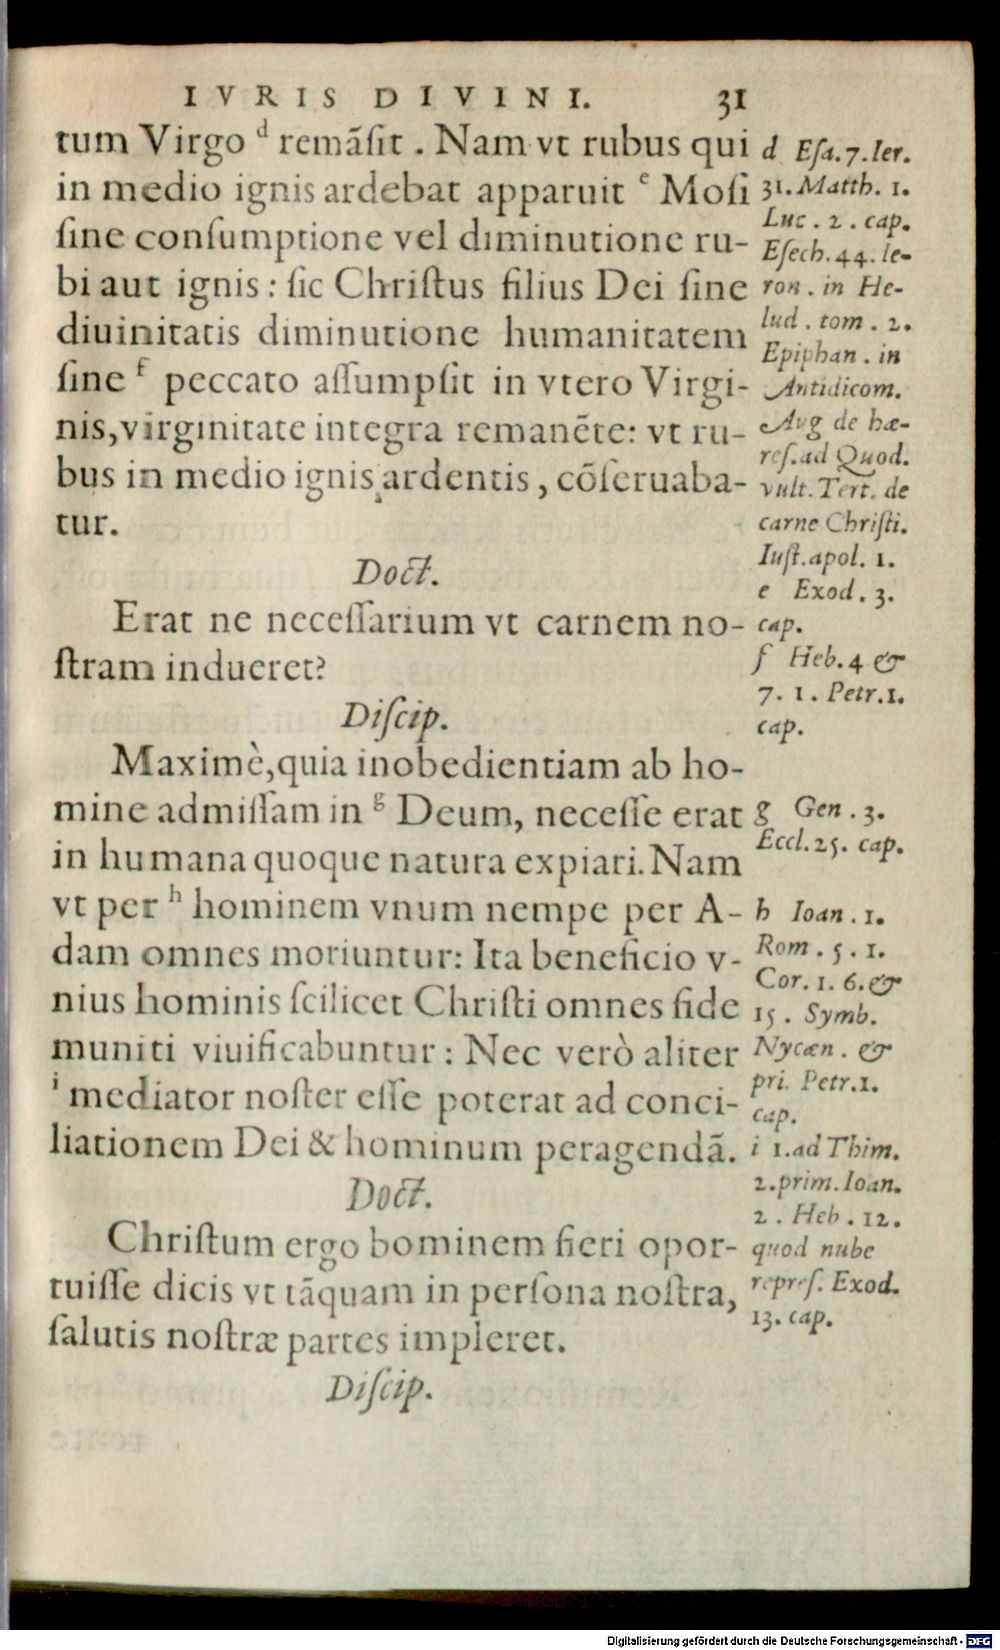 IVRIS DIVINI. 31
tum Virgo ᵈ remãſit . Nam vt rubus qui
in medio ignis ardebat apparuit ᵉ Moſi
ſine conſumptione vel diminutione ru-
bi aut ignis : ſic Chriſtus filius Dei ſine
diuinitatis diminutione humanitatem
ſine ᶠ peccato aſſumpſit in vtero Virgi-
nis, virginitate integra remanẽte: vt ru-
bus in medio ignis ardentis , cõſeruaba-
tur.
Doct.
Erat ne neceſſarium vt carnem no-
ſtram indueret?
Diſcip.
Maximè, quia inobedientiam ab ho-
mine admiſſam in ᵍ Deum, neceſſe erat
in humana quoque natura expiari. Nam
vt per ʰ hominem vnum nempe per A-
dam omnes moriuntur: Ita beneficio v-
nius hominis ſcilicet Chriſti omnes fide
muniti viuificabuntur : Nec verò aliter
ⁱ mediator noſter eſſe poterat ad conci-
liationem Dei & hominum peragendã.
Doct.
Chriſtum ergo hominem fieri opor-
tuiſſe dicis vt tãquam in perſona noſtra,
ſalutis noſtræ partes impleret.
Diſcip.
d Eſa. 7. Ier.
31. Matth. 1.
Luc . 2 . cap.
Eſech. 44. Ie-
ron . in He-
lud . tom . 2.
Epiphan . in
Antidicom.
Aug de hæ-
reſ. ad Quod.
vult. Tert. de
carne Chriſti.
Iuſt. apol. 1.
e Exod . 3.
cap.
f Heb. 4 &
7. 1 . Petr. 1.
cap.
g Gen . 3.
Eccl. 25. cap.
h Ioan . 1.
Rom . 5 . 1.
Cor. 1. 6. &
15 . Symb.
Nycæn . &
pri. Petr. 1.
cap.
i 1. ad Thim.
2. prim. Ioan.
2 . Heb . 12.
quod nube
repreſ. Exod.
13. cap.
Digitalisierung gefördert durch die Deutsche Forschungsgemeinschaft - DFG